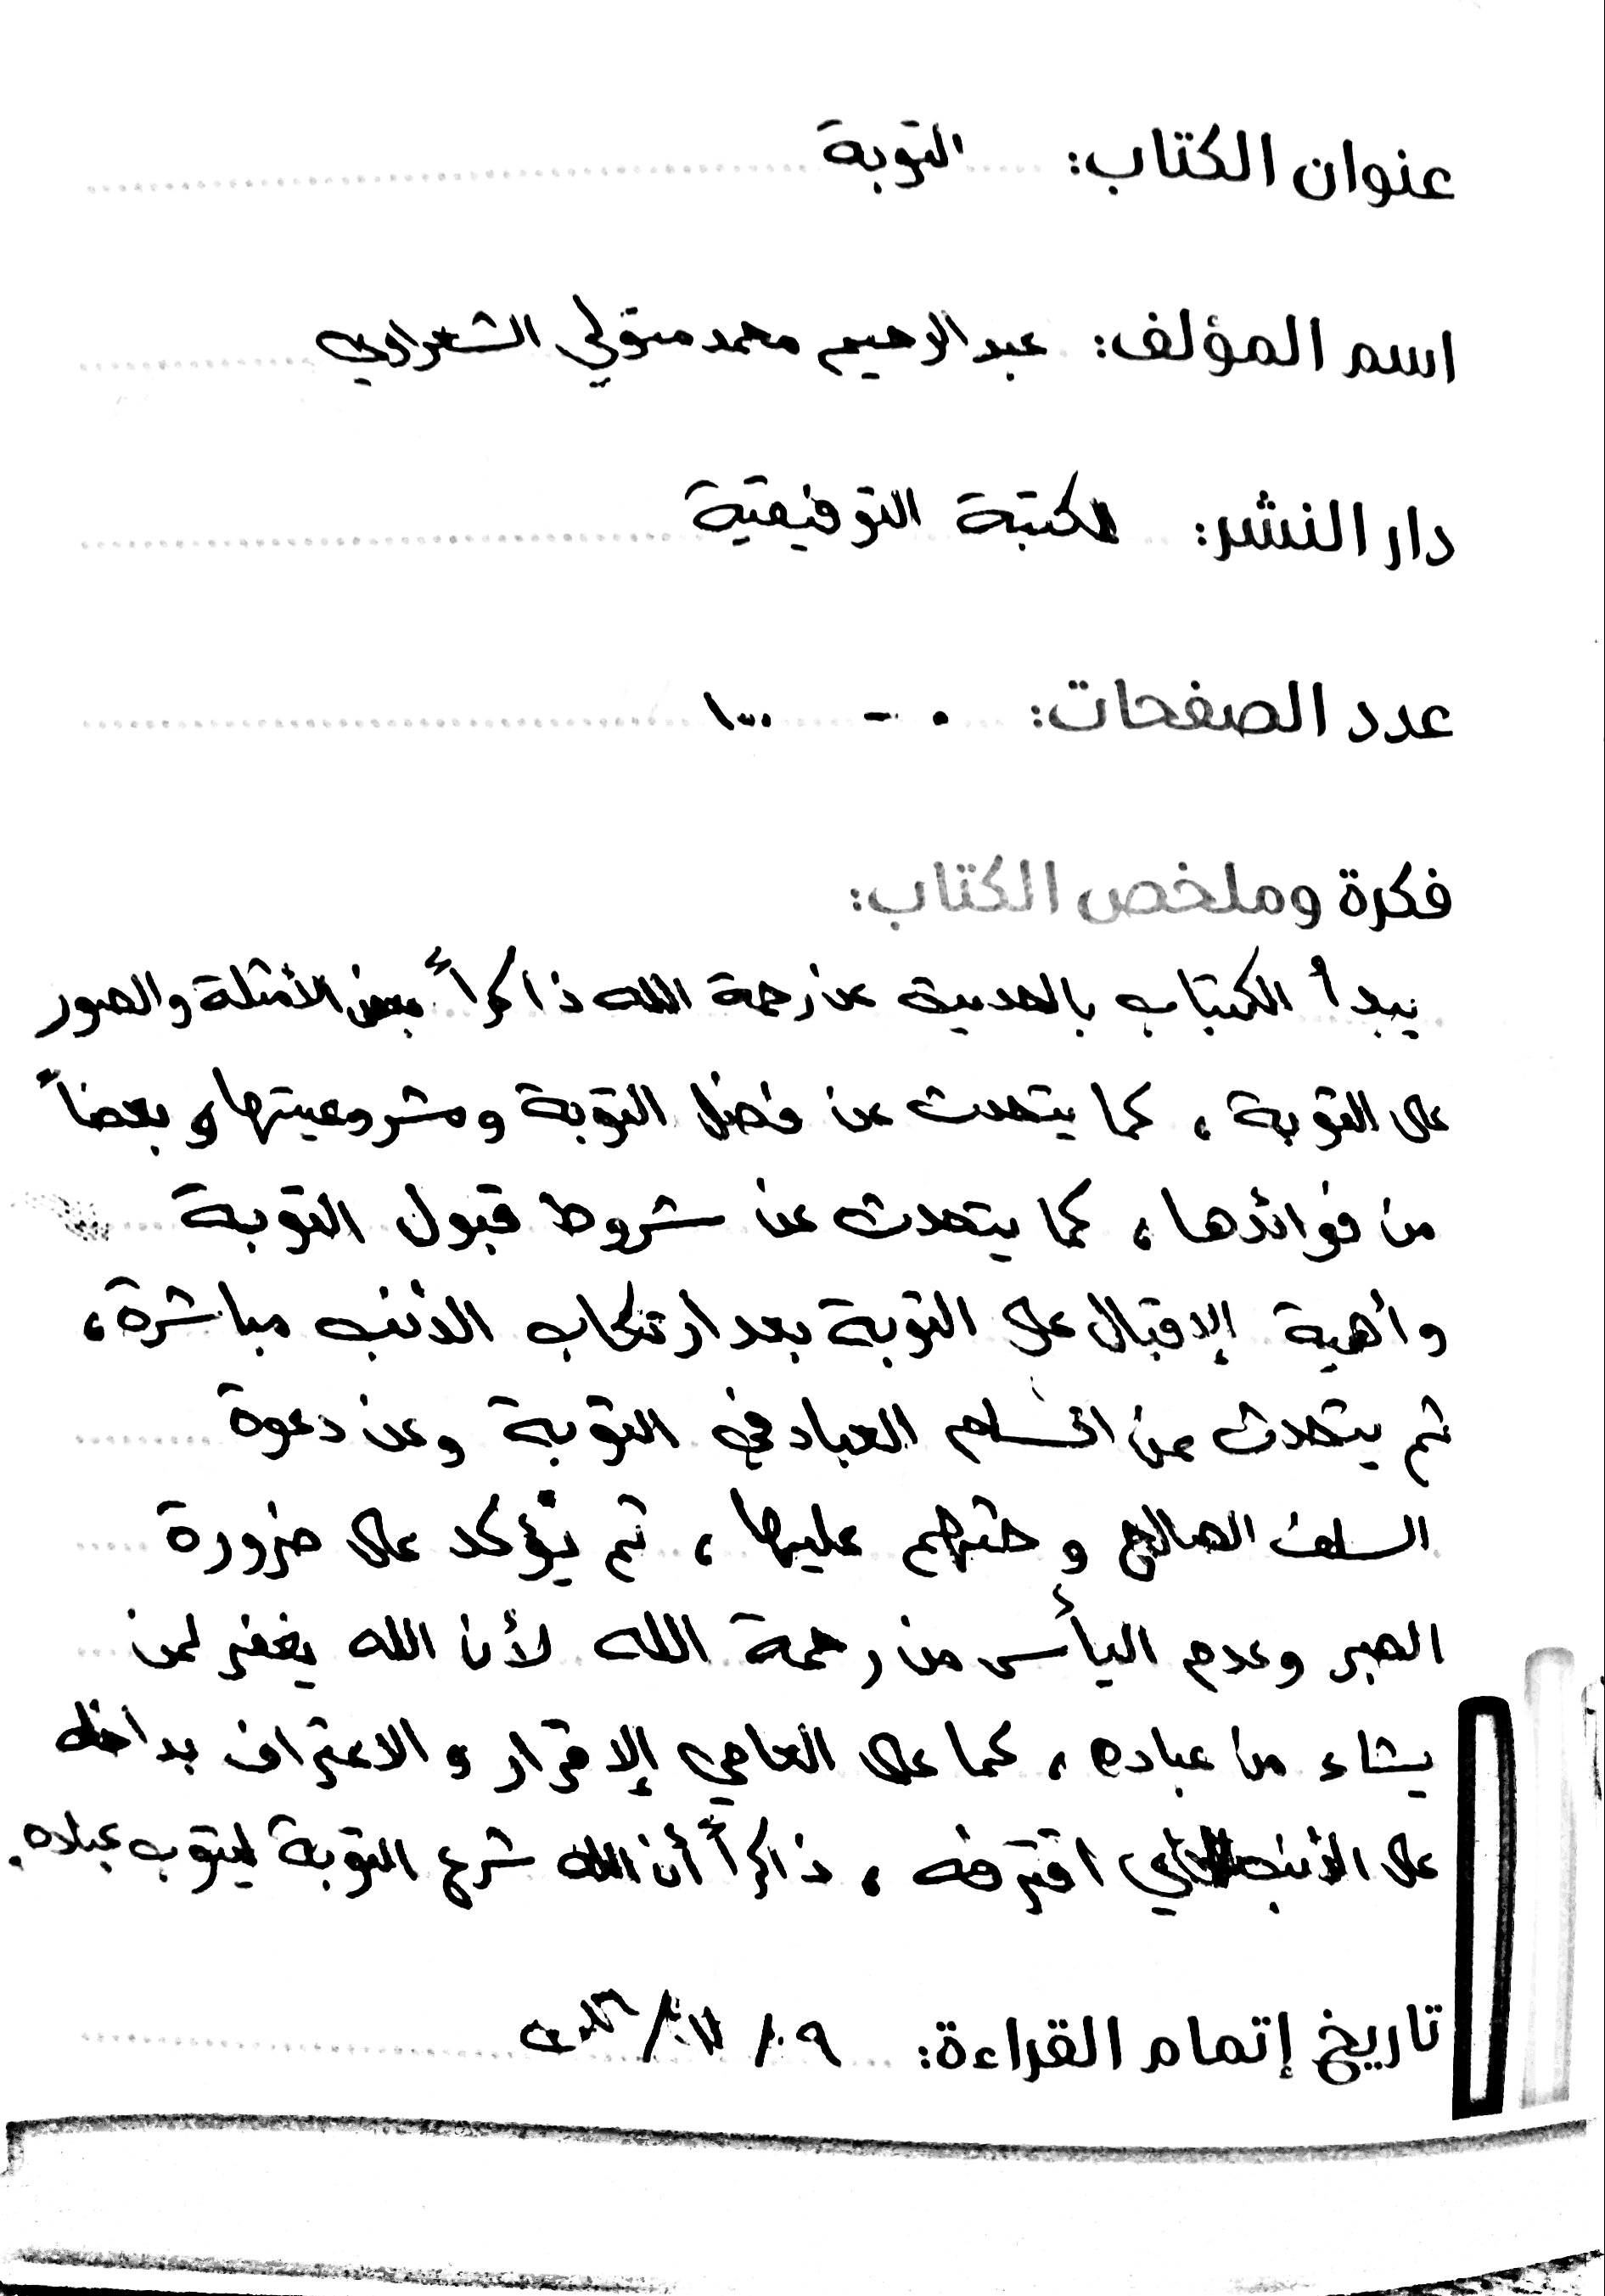 عنوان الكتاب: التوبة
اسم المؤلف: عبد الرحيم محمد متولي الشعراوي
دار النشر: المكتبة التوفيقية
عدد الصفحات: ٠ - ١٠٠
فكرة وملخص الكتاب:
يبدأ الكتاب بالحديث عن رحمة الله ذاكراً بعض الأمثلة والصور
على التوبة، كما يتحدث عن فضل التوبة ومشروعيتها و بعضاً
من فوائدها، كما يتحدث عن شروط قبول التوبة
وأهمية الإقبال على التوبة بعد ارتكاب الذنب مباشرة،
ثم يتحدث عن اقسام العباد في التوبة وعن دعوة
السلف الصالح و حثهم عليها، ثم يؤكد على ضرورة
الصبر وعدم اليأس من رحمة الله لأن الله يغفر لمن
يشاء من عباده، كما على العاصي الإقرار و الاعتراف بداخله
على الذنب الذي اقترفه، ذاكراً أن الله شرع التوبة ليتوب عباده.
تاريخ إتمام القراءة: ٠٩ /